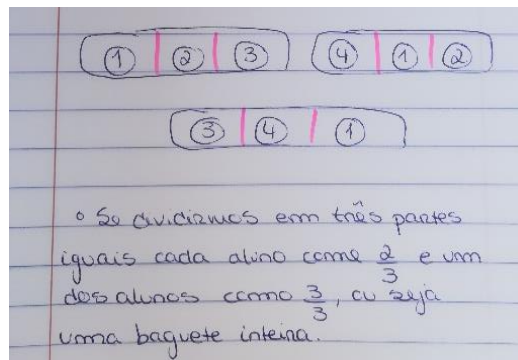 1 2 3 4 1 2
3 4 1
• Se dividirmos em três partes
iguais cada aluno come 2/3 e um
dos alunos como 3/3, ou seja
uma baguete inteira.